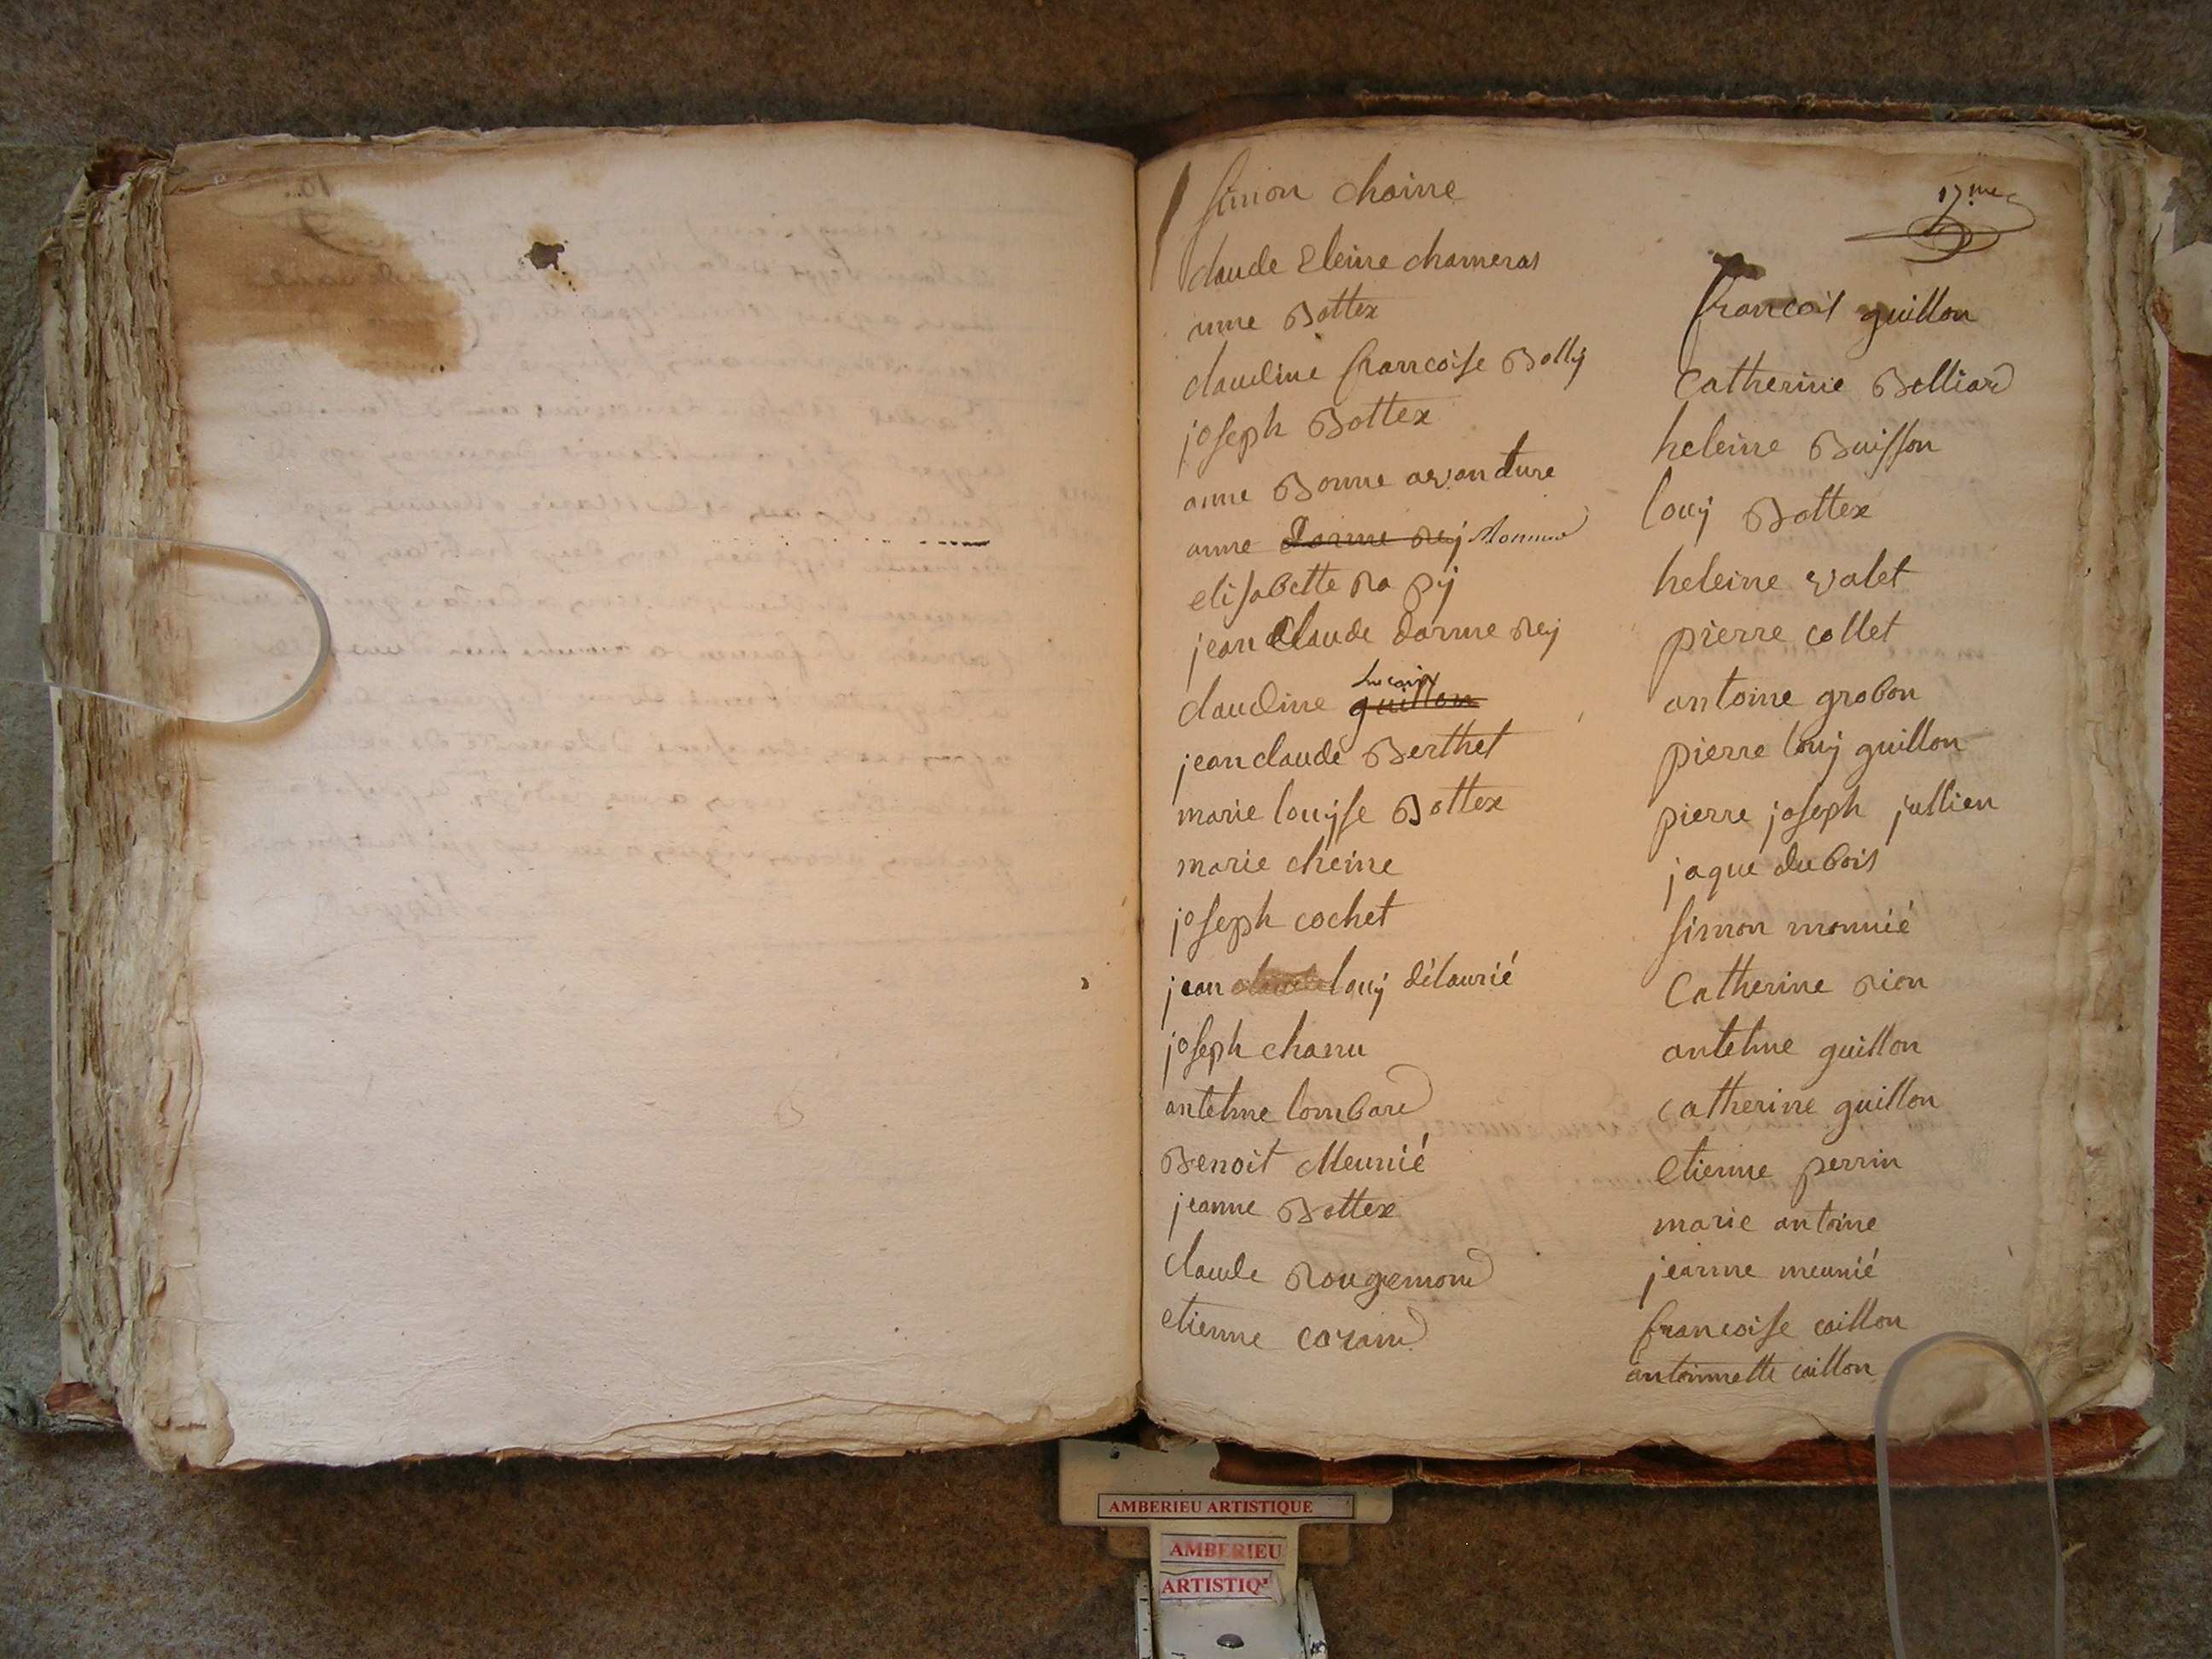 17me
simon chaine
claude eleine chameras
anne Bottex
claudine francoise Bolly
joseph Bottex
anne Bonne avanture
anne darme rey
elisabette ra py
jean claude darme rey
claudine guillon
jean claude Berthet
marie louyse Bottex
marie cheine
joseph cochet
jean louy délaurié
joseph chanu
antelme lombard
Benoit Meunié
jeanne Bottex
claude Rougemond
etienne carand
francois guillon
Catherine Belliard
heleine Buisson
louy Bottex
heleine valet
pierre collet
antoine grobon
pierre louy guillon
pierre joseph jullien
jaque dubois
simon monnié
Catherine rion
antelme guillon
catherine guillon
etienne perrin
marie antoine
jeanne meunié
francoise caillon
antoinnette caillon
AMBERIEU ARTISTIQUE
AMBERIEU
ARTISTIQ